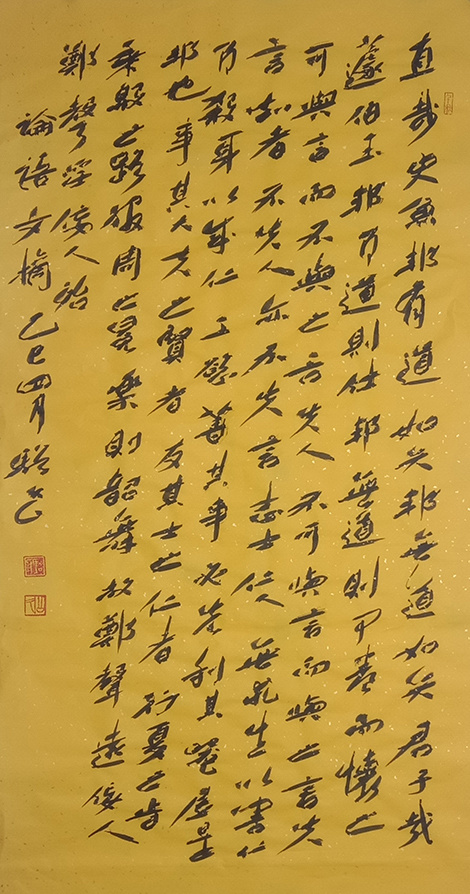 直哉史魚邦有道如矢邦無道如矢君子哉
蘧伯玉邦有道則仕邦無道則可卷而懷之
可與言而不與之言失人不可與言而與之言失
言知者不失人亦不失言志士仁人無求生以害仁
有殺身以成仁工欲善其事必先利其器居是
邦也事其大夫之賢者友其士之仁者行夏之時
乘殷之輅服周之冕樂則韶舞放鄭聲遠佞人
鄭聲淫佞人殆
論語文摘 乙巳四月